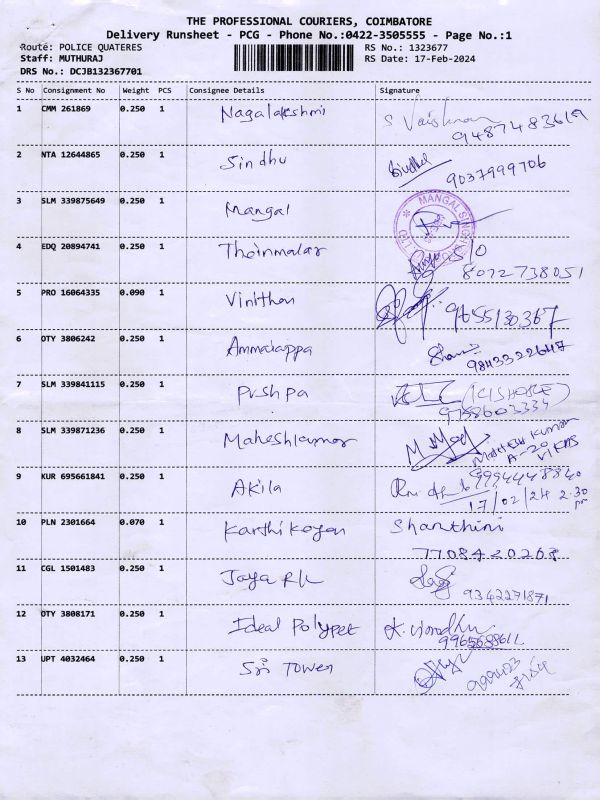 THE PROFESSIONAL COURIERS, COIMBATORE
Delivery Runsheet - PCG - Phone No.:0422-3505555 - Page No.:1
Route: POLICE QUATERES RS No.: 1323677
Staff: MUTHURAJ RS Date: 17-Feb-2024
DRS No.: DCJB132367701
S No Consignment No Weight PCS Consignee Details Signature
1 CMM 261869 0.250 1 Nagalakshmi
9487483619
2 NTA 12644865 0.250 1 Sindhu
9037999706
3 SLM 339875649 0.250 1 Mangal
MANGAL SINGH
4 EDQ 20894741 0.250 1 Thenmalar S/O
8072738051
5 PRO 16064335 0.090 1 Vinithan
9655130367
6 OTY 3806242 0.250 1 Ammaiappa
9843322647
7 SLM 339841115 0.250 1 Pushpa (KISHORE)
8 SLM 339871236 0.250 1 Maheshkumar
Mahesh Kumar
A-20
VIKAS
9 KUR 695661841 0.250 1 Akila 9994448840
17/02/24 2.30
pm
10 PLN 2301664 0.070 1 Karthikeyan Shanthini
7708420268
11 CGL 1501483 0.250 1 Jaya
9342271871
12 OTY 3808171 0.250 1 Ideal Polypet
9965688611
13 UPT 4032464 0.250 1 Sri Tower